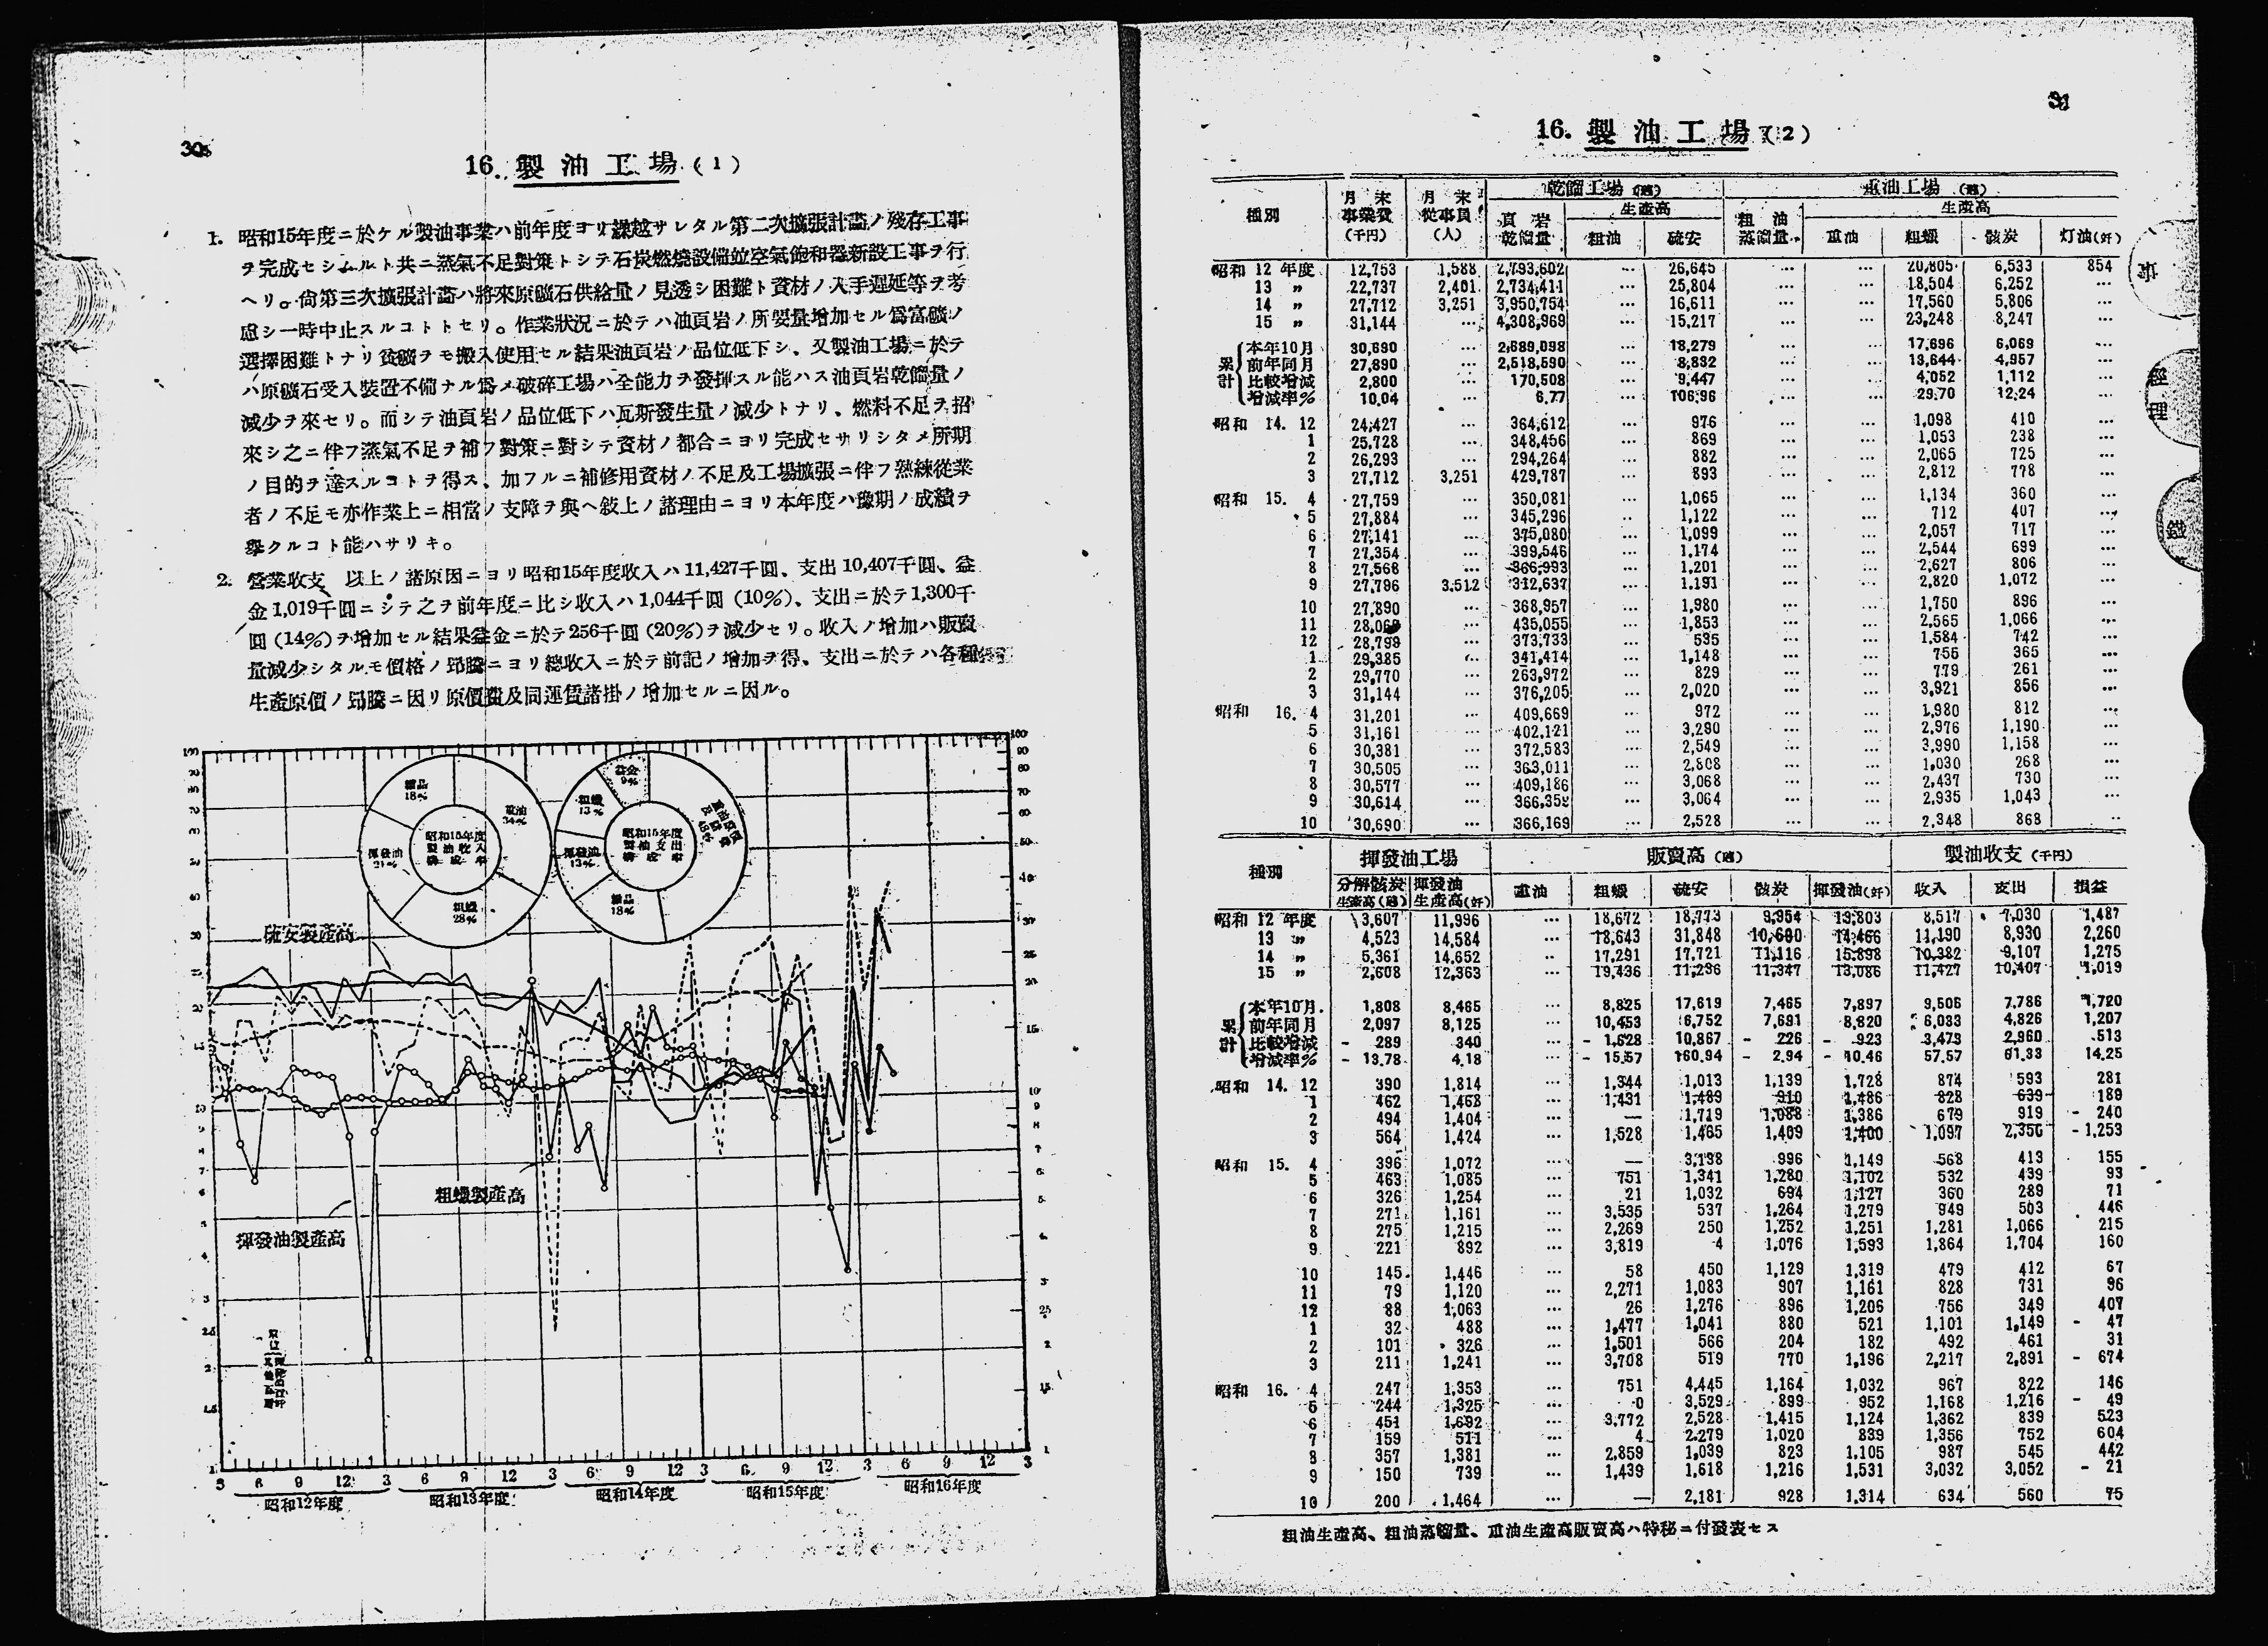 30
16. 製油工場 (1)
1. 昭和15年度ニ於ケル製油事業ハ前年度ヨリ繰越サレタル第二次擴張計畫ノ殘存工事
ヲ完成セシムルト共ニ蒸氣不足對策トシテ石炭燃燒設備竝空氣飽和器新設工事ヲ行
ヘリ。尙第三次擴張計畫ハ將來原礦石供給量ノ見透シ困難ト資材ノ入手遲延等ヲ考
慮シ一時中止スルコトトセリ。作業狀況ニ於テハ油頁岩ノ所要量增加セル爲富礦ノ
選擇困難トナリ貧礦ヲモ搬入使用セル結果油頁岩ノ品位低下シ、又製油工場ニ於テ
ハ原礦石受入裝置不備ナル爲メ破碎工場ハ全能力ヲ發揮スル能ハス油頁岩乾餾量ノ
減少ヲ來セリ。而シテ油頁岩ノ品位低下ハ瓦斯發生量ノ減少トナリ、燃料不足ヲ招
來シ之ニ伴フ蒸氣不足ヲ補フ對策ニ對シテ資材ノ都合ニヨリ完成セサリシタメ所期
ノ目的ヲ達スルコトヲ得ス、加フルニ補修用資材ノ不足及工場擴張ニ伴フ熟練從業
者ノ不足モ亦作業上ニ相當ノ支障ヲ與ヘ敍上ノ諸理由ニヨリ本年度ハ豫期ノ成績ヲ
擧クルコト能ハサリキ。
2. 營業收支 以上ノ諸原因ニヨリ昭和15年度收入ハ11,427千圓、支出10,407千圓、益
金1,019千圓ニシテ之ヲ前年度ニ比シ收入ハ1,044千圓(10%)、支出ニ於テ1,300千
圓(14%)ヲ增加セル結果益金ニ於テ256千圓(20%)ヲ減少セリ。收入ノ增加ハ販賣
量減少シタルモ價格ノ昂騰ニヨリ總收入ニ於テ前記ノ增加ヲ得、支出ニ於テハ各種
生產原價ノ昂騰ニ因リ原價費及同運賃諸掛ノ增加セルニ因ル。
昭和15年度 製油收入 構成率
重油 34%
粗蠟 28%
揮發油 21%
副品 18%
昭和15年度 製油支出 構成率
益金 9%
粗蠟 13%
揮發油 13%
副品 18%
硫安製產高
粗蠟製產高
揮發油製產高
3 6 9 12 3 6 9 12 3 6 9 12 3 6 9 12 3 6 9 12 3
昭和12年度 昭和13年度 昭和14年度 昭和15年度 昭和16年度
31
16. 製油工場 (2)
種別 月末事業費(千円) 月末從事員(人) 乾餾工場(瓲) 重油工場(瓲)
頁岩乾餾量 生產高 粗油 硫安 粗油蒸餾量 生產高 重油 粗蠟 骸炭 灯油(竏)
昭和12年度 12,753 1,588 2,793,602 … 26,645 … … 20,805 6,533 854
13 〃 22,737 2,401 2,734,411 … 25,804 … … 18,504 6,252 …
14 〃 27,712 3,251 3,950,754 … 16,611 … … 17,560 5,806 …
15 〃 31,144 … 4,308,969 … 15,217 … … 23,248 8,247 …
累計 本年10月 30,690 … 2,689,098 … 18,279 … … 17,696 6,069 …
前年同月 27,890 … 2,518,590 … 8,832 … … 13,644 4,957 …
比較增減 2,800 … 170,508 … 9,447 … … 4,052 1,112 …
增減率% 10.04 … 6.77 … 106.96 … … 29.70 12.24 …
昭和 14. 12 24,427 … 364,612 … 976 … … 1,098 410 …
1 25,728 … 348,456 … 869 … … 1,053 238 …
2 26,293 … 294,264 … 882 … … 2,065 725 …
3 27,712 3,251 429,787 … 893 … … 2,812 778 …
昭和 15. 4 27,759 … 350,081 … 1,065 … … 1,134 360 …
5 27,884 … 345,296 … 1,122 … … 712 407 …
6 27,141 … 375,080 … 1,099 … … 2,057 717 …
7 27,354 … 399,546 … 1,174 … … 2,544 699 …
8 27,568 … 366,993 … 1,201 … … 2,627 806 …
9 27,796 3,512 312,637 … 1,191 … … 2,820 1,072 …
10 27,890 … 368,957 … 1,980 … … 1,750 896 …
11 … 435,055 … 1,853 … … 2,565 1,066 …
12 28,799 … 373,733 … 535 … … 1,584 742 …
1 29,385 … 341,414 … 1,148 … … 756 365 …
2 29,770 … 263,972 … 829 … … 779 261 …
3 31,144 … 376,205 … 2,020 … … 3,921 856 …
昭和 16. 4 31,201 … 409,669 … 972 … … 1,980 812 …
5 31,161 … 402,121 … 3,290 … … 2,976 1,190 …
6 30,381 … 372,583 … 2,549 … … 3,990 1,158 …
7 30,505 … 363,011 … 2,808 … … 1,030 268 …
8 30,577 … 409,186 … 3,068 … … 2,437 730 …
9 30,614 … 366,359 … 3,064 … … 2,935 1,043 …
10 30,690 … 366,169 … 2,528 … … 2,348 868 …
種別 揮發油工場 販賣高(瓲) 製油收支(千円)
分解骸炭生產高(瓲) 揮發油生產高(竏) 重油 粗蠟 硫安 骸炭 揮發油(竏) 收入 支出 損益
昭和12年度 3,607 11,996 … 18,672 18,773 9,954 19,803 8,517 7,030 1,487
13 〃 4,523 14,584 … 18,643 31,848 10,690 14,466 11,190 8,930 2,260
14 〃 5,361 14,652 … 17,291 17,721 11,116 15,898 10,382 9,107 1,275
15 〃 2,608 12,363 … 19,436 11,236 11,347 13,086 11,427 10,407 1,019
累計 本年10月 1,808 8,465 … 8,825 17,619 7,465 7,897 9,506 7,786 1,720
前年同月 2,097 8,125 … 10,453 6,752 7,691 8,820 6,033 4,826 1,207
比較增減 - 289 340 … - 1,628 10,867 - 226 - 923 3,473 2,960 513
增減率% - 13.78 4.18 … - 15.57 160.94 - 2.94 - 10.46 57.57 61.33 14.25
昭和 14. 12 390 1,814 … 1,344 1,013 1,139 1,728 874 593 281
1 462 1,468 … 1,431 1,489 910 1,486 828 639 189
2 494 1,404 … — 1,719 1,088 1,386 679 919 - 240
3 564 1,424 … 1,528 1,465 1,409 1,400 1,097 2,350 - 1,253
昭和 15. 4 396 1,072 … — 3,138 996 1,149 568 413 155
5 463 1,085 … 751 1,341 1,280 1,102 532 439 93
6 326 1,254 … 21 1,032 694 1,127 360 289 71
7 271 1,161 … 3,535 537 1,264 1,279 949 503 446
8 275 1,215 … 2,269 250 1,252 1,251 1,281 1,066 215
9 221 892 … 3,819 4 1,076 1,593 1,864 1,704 160
10 145 1,446 … 58 450 1,129 1,319 479 412 67
11 79 1,120 … 2,271 1,083 907 1,161 828 731 96
12 88 1,063 … 26 1,276 896 1,206 756 349 407
1 32 488 … 1,477 1,041 880 521 1,101 1,149 - 47
2 101 326 … 1,501 566 204 182 492 461 31
3 211 1,241 … 3,708 519 770 1,196 2,217 2,891 - 674
昭和 16. 4 247 1,353 … 751 4,445 1,164 1,032 967 822 146
5 244 1,325 … 0 3,529 899 952 1,168 1,216 - 49
6 451 1,692 … 3,772 2,528 1,415 1,124 1,362 839 523
7 159 511 … 4 2,279 1,020 839 1,356 752 604
8 357 1,381 … 2,859 1,039 823 1,105 987 545 442
9 150 739 … 1,439 1,618 1,216 1,531 3,032 3,052 - 21
10 200 1,464 … — 2,181 928 1,314 634 560 75
粗油生產高、粗油蒸餾量、重油生產高販賣高ハ特秘ニ付發表セス
經理